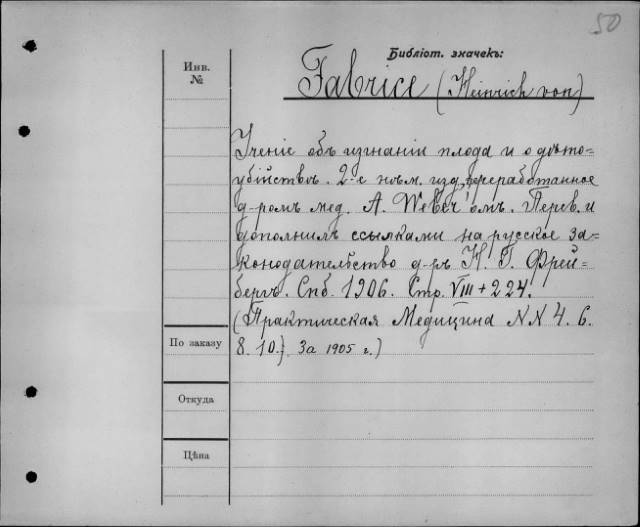 50
Библіот. значекъ:
Инв.
№
Fabrice (Heinrich von)
Ученіе объ изгнаніи плода и о дѣто-
убійствѣ. 2-е нѣм. изд., переработанное
д-ромъ мед. А. Weber'омъ. Перев. и
дополнилъ ссылками на русское за-
конодательство д-ръ Н. Г. Фрей-
бергъ. Спб. 1906. Стр. VIII + 224.
(Практическая Медицина NN 4. 6.
По заказу
8. 10.}. За 1905 г.)
Откуда
Цѣна